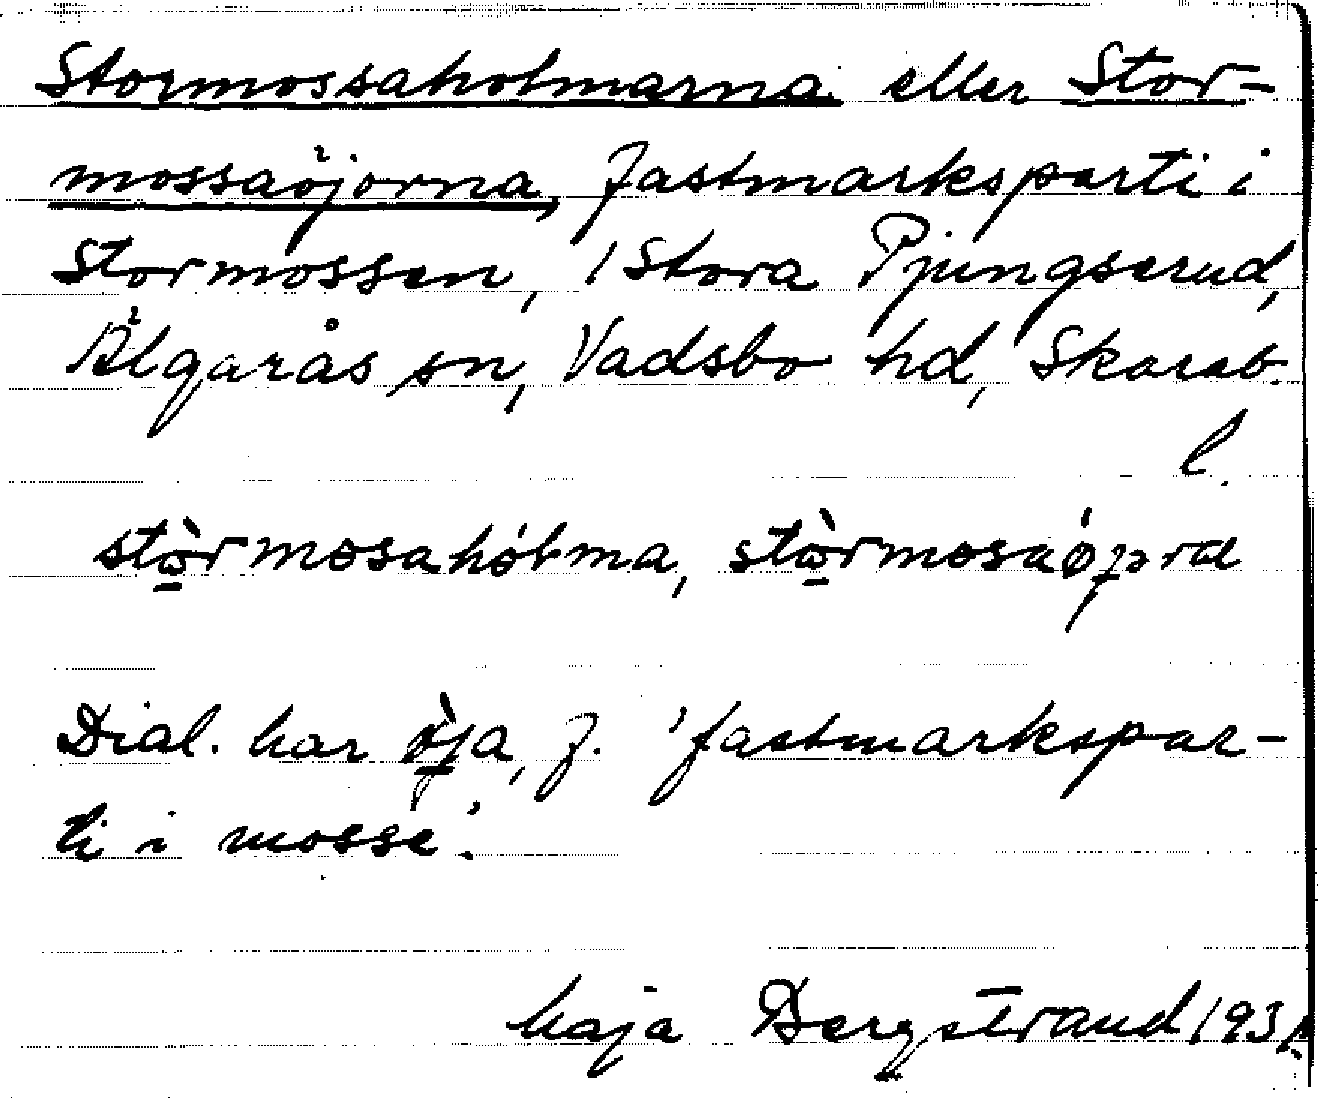 Stormossaholmarna eller Stor-
mossaöjorna, fastmarksparti i
Stormossen, 1 Stora Pjungserud,
Älgarås sn, Vadsbo hd, Skarab.
l.
stò̠rmosahólma, stò̠rmosaójorа
Dial. har ò̠ja, f. 'fastmarkspar-
ti i mosse'.
Maja Bergstrand 1931.